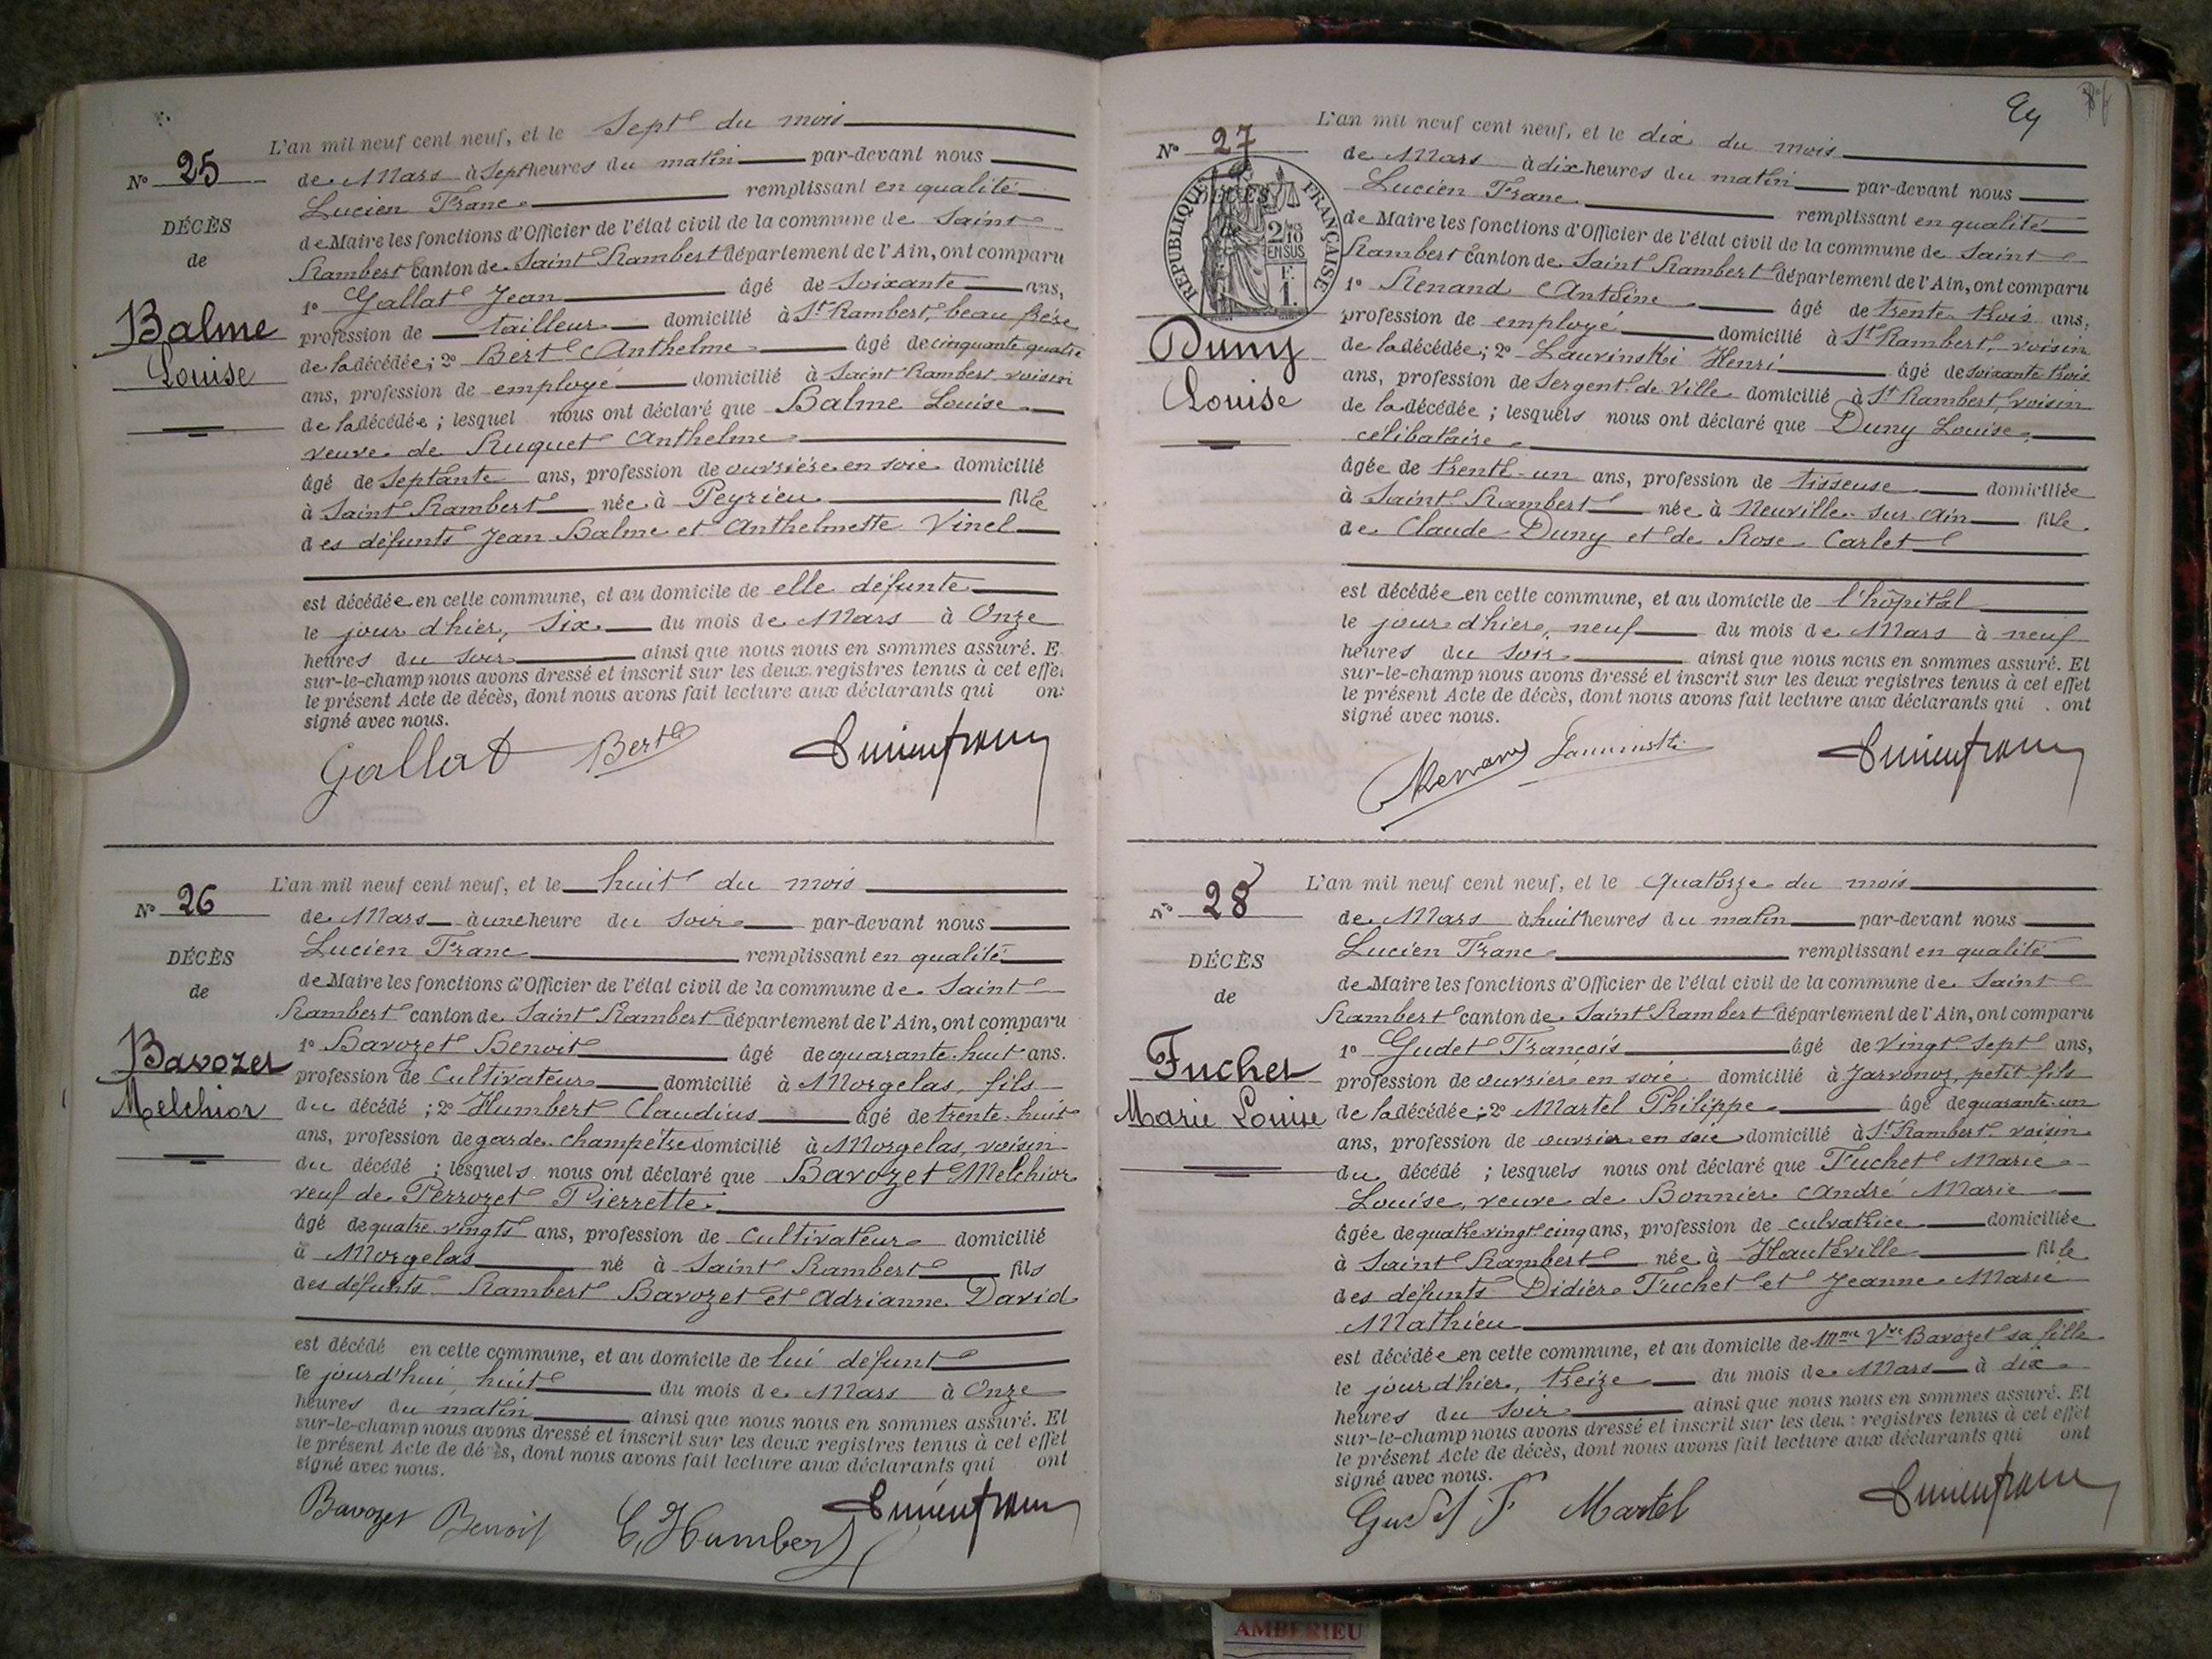 L'an mil neuf cent neuf, et le Sept du mois
N° 25
de Mars à Sept heures du matin par-devant nous
Lucien Franc remplissant en qualité
DÉCÈS
de Maire les fonctions d'Officier de l'état civil de la commune de Saint
de
Rambert canton de Saint Rambert département de l'Ain, ont comparu
1° Gallat Jean âgé de Soixante ans,
Balme
profession de tailleur domicilié à St Rambert, beau frère
Louise
de la décédée; 2° Bert Anthelme âgé de cinquante quatre
ans, profession de employé domicilié à Saint Rambert voisin
de la décédée; lesquel nous ont déclaré que Balme Louise
veuve de Ruquet Anthelme
âgé de Septante ans, profession de ouvrière en soie domicilié
à Saint Rambert née à Peyrieu fille
des défunts Jean Balme et Anthelmette Vinel
est décédée en cette commune, et au domicile de elle défunte
le jour d'hier, Six du mois de Mars à Onze
heures du soir ainsi que nous nous en sommes assuré. E
sur-le-champ nous avons dressé et inscrit sur les deux registres tenus à cet effe
le présent Acte de décès, dont nous avons fait lecture aux déclarants qui on
signé avec nous.
Gallat Bert Lucien franc
L'an mil neuf cent neuf, et le huit du mois
N° 26
de Mars à une heure du Soir par-devant nous
Lucien Franc remplissant en qualité
DÉCÈS
de Maire les fonctions d'Officier de l'état civil de la commune de Saint
de
Rambert canton de Saint Rambert département de l'Ain, ont comparu
1° Bavozet Benoit âgé de quarante huit ans.
Bavozet
profession de Cultivateur domicilié à Morgelas, fils
Melchior
du décédé; 2° Humbert Claudius âgé de trente huit
ans, profession de garde champêtre domicilié à Morgelas, voisin
du décédé; lesquels nous ont déclaré que Bavozet Melchior
veuf de Perrozet Pierrette
âgé de quatre vingts ans, profession de Cultivateur domicilié
à Morgelas né à Saint Rambert fils
des défunts Rambert Bavozet et Adrianne David
est décédé en cette commune, et au domicile de lui défunt
le jourd'hui huit du mois de Mars à Onze
heures du matin ainsi que nous nous en sommes assuré. Et
sur-le-champ nous avons dressé et inscrit sur les deux registres tenus à cet effet
le présent Acte de décès, dont nous avons fait lecture aux déclarants qui ont
signé avec nous.
Bavozet Benoit C. Humbert Lucien franc
L'an mil neuf cent neuf, et le dix du mois
N° 27
de Mars à dix heures du matin par-devant nous
Lucien Franc remplissant en qualité
DÉCÈS
RÉPUBLIQUE FRANÇAISE
2/10 EN SUS
F. 1.
de Maire les fonctions d'Officier de l'état civil de la commune de Saint
Rambert canton de Saint Rambert département de l'Ain, ont comparu
1° Renand Antoine âgé de trente trois ans,
profession de employé domicilié à St Rambert, voisin
Duny
de la décédée; 2° Lauvinski Henri âgé de soixante trois
Louise
ans, profession de Sergent de Ville domicilié à St Rambert, voisin
de la décédée; lesquels nous ont déclaré que Duny Louise,
célibataire
âgée de trente-un ans, profession de tisseuse domiciliée
à Saint Rambert née à Neuville sur Ain fille
de Claude Duny et de Rose Carlet
est décédée en cette commune, et au domicile de l'hôpital
le jour d'hier, neuf du mois de Mars à neuf
heures du soir ainsi que nous nous en sommes assuré. Et
sur-le-champ nous avons dressé et inscrit sur les deux registres tenus à cet effet
le présent Acte de décès, dont nous avons fait lecture aux déclarants qui ont
signé avec nous.
Renand Lucien franc
L'an mil neuf cent neuf, et le Quatorze du mois
N° 28
de Mars à huit heures du matin par-devant nous
Lucien Franc remplissant en qualité
DÉCÈS
de Maire les fonctions d'Officier de l'état civil de la commune de Saint
de
Rambert canton de Saint Rambert département de l'Ain, ont comparu
1° Gudet François âgé de Vingt Sept ans,
Fuchet
profession de ouvrier en soie domicilié à Jarvonoz, petit fils
Marie Louise
de la décédée; 2° Martel Philippe âgé de quarante un
ans, profession de ouvrier en soie domicilié à St Rambert voisin
du décédé; lesquels nous ont déclaré que Fuchet Marie
Louise, veuve de Bonnier André Marie
âgée de quatre vingt cinq ans, profession de culvatrice domiciliée
à Saint Rambert née à Hauteville fille
des défunts Didier Fuchet et Jeanne Marie
Mathieu
est décédée en cette commune, et au domicile de Mme Vve Bavozet sa fille
le jour d'hier, treize du mois de Mars à dix
heures du Soir ainsi que nous nous en sommes assuré. Et
sur-le-champ nous avons dressé et inscrit sur les deux registres tenus à cet effet
le présent Acte de décès, dont nous avons fait lecture aux déclarants qui ont
signé avec nous.
Gudet F Martel Lucien franc
AMBERIEU